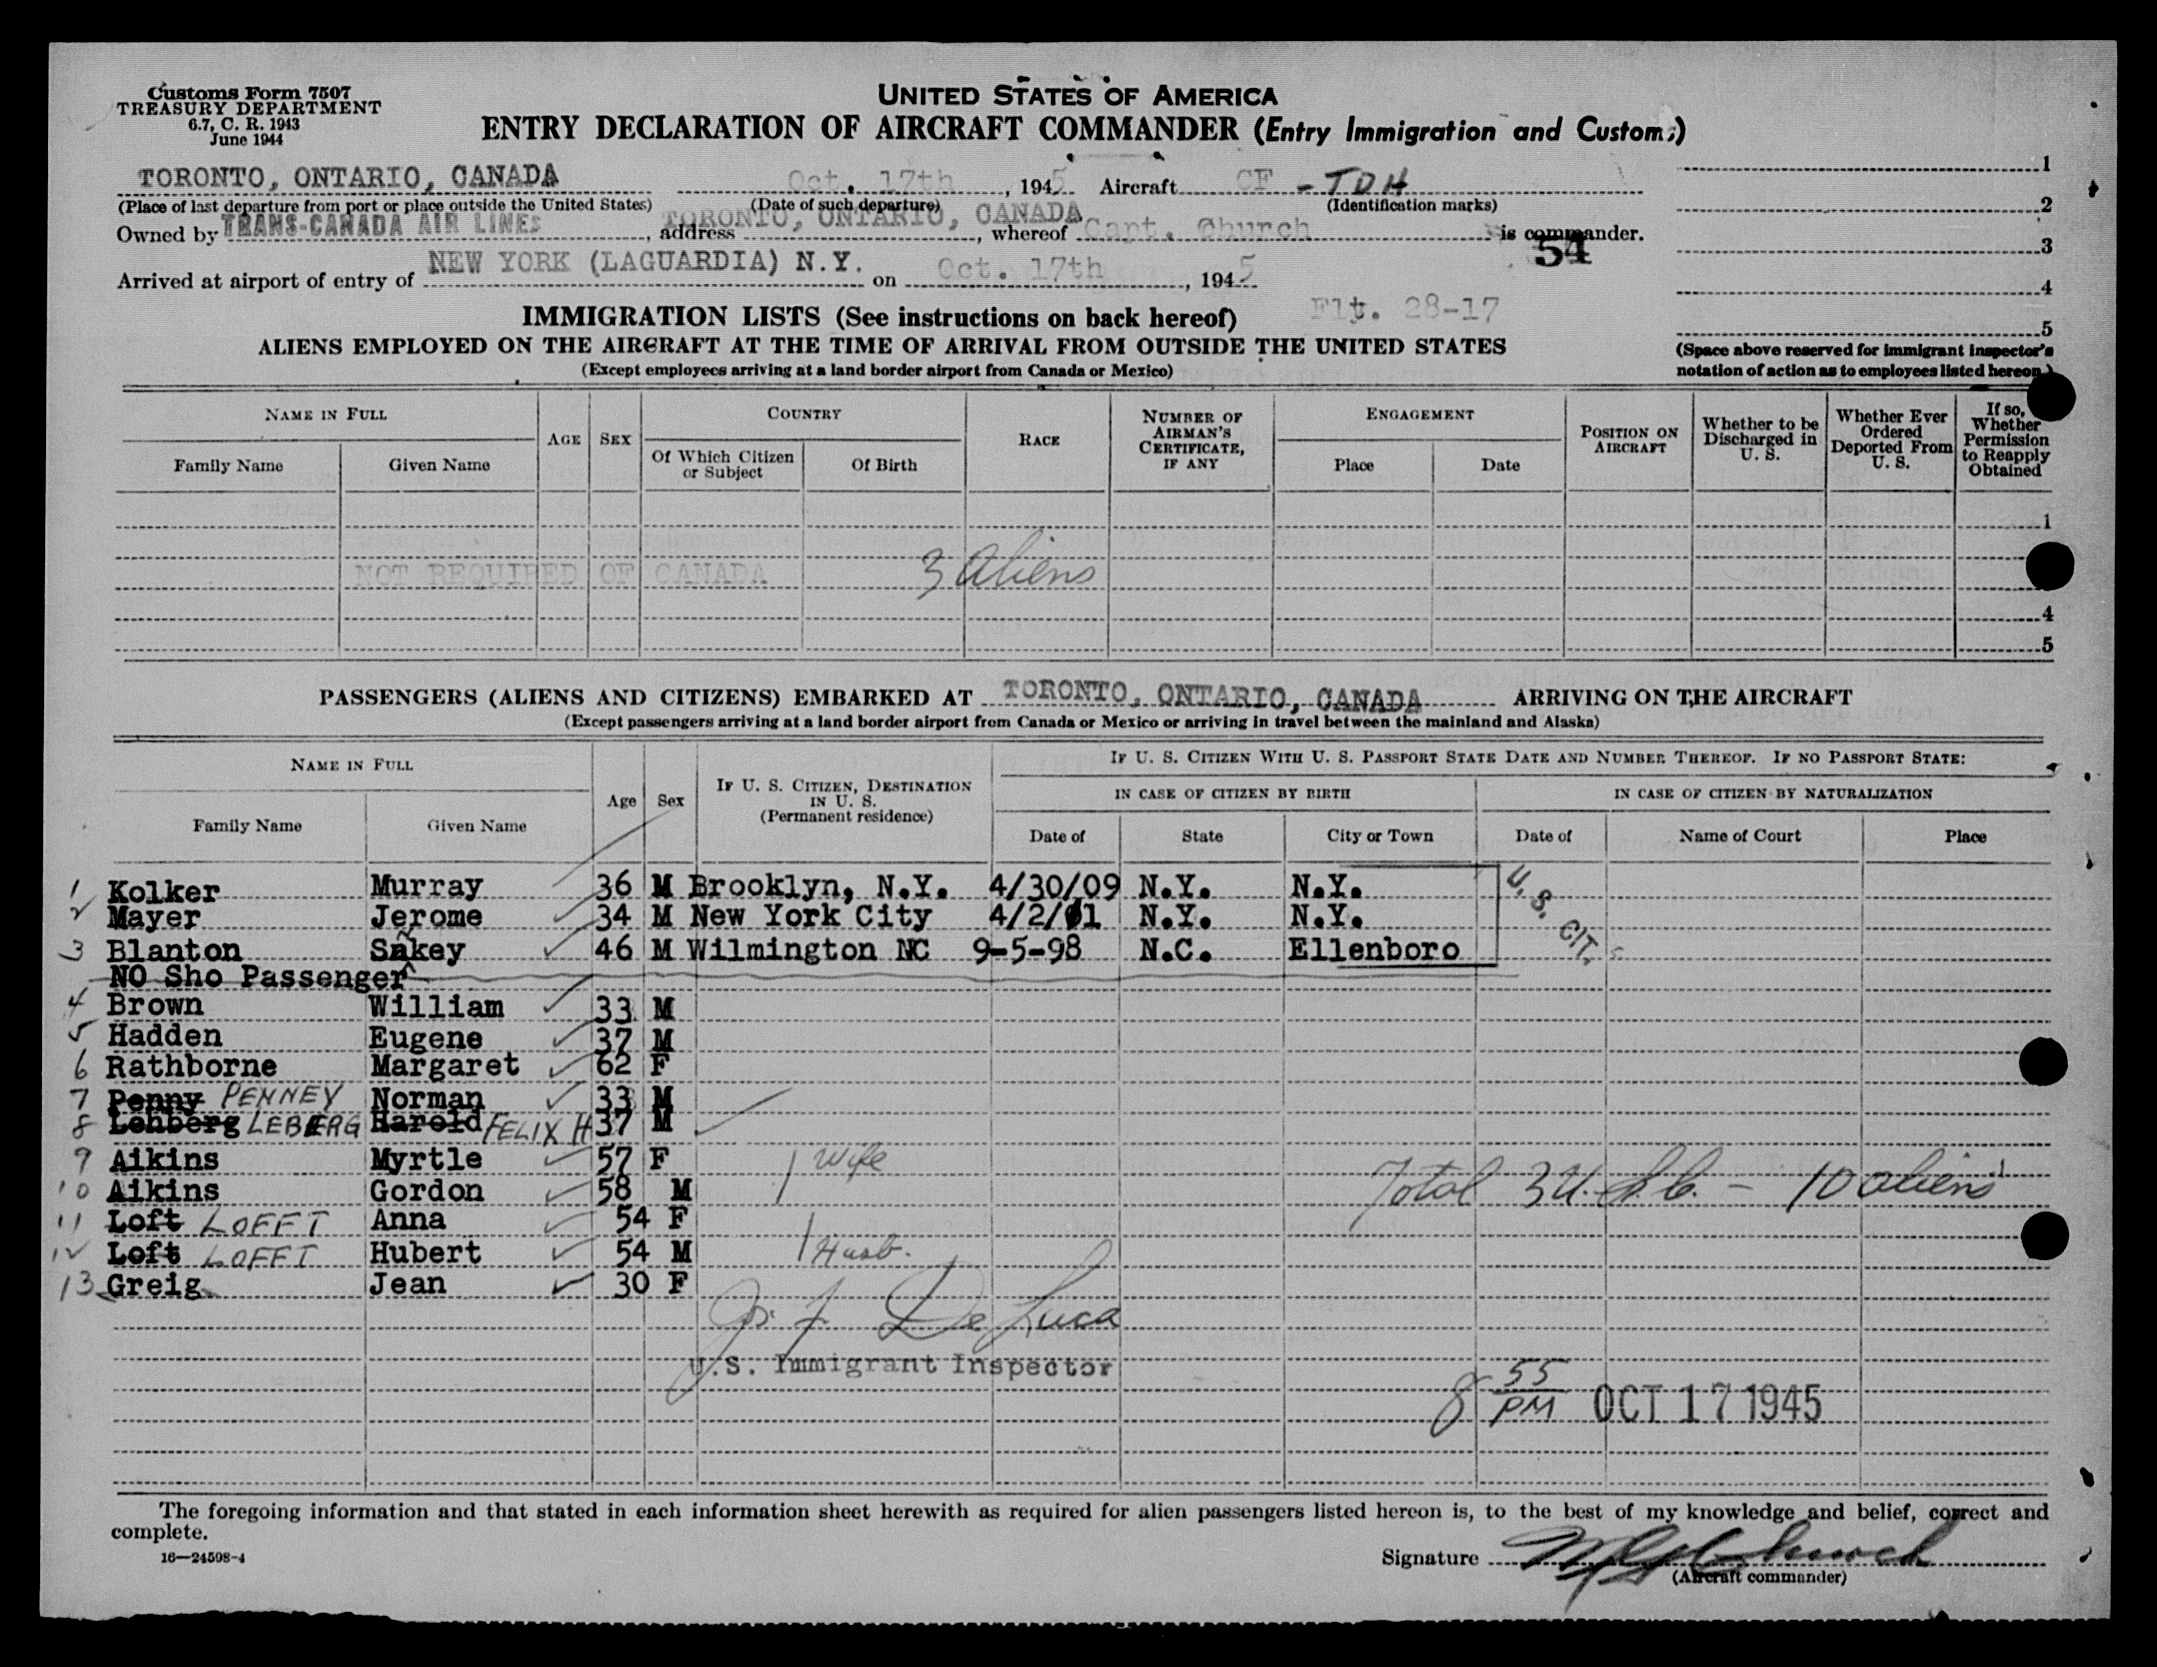 Customs Form 7507
TREASURY DEPARTMENT
6.7, C. R. 1943
June 1944
UNITED STATES OF AMERICA
ENTRY DECLARATION OF AIRCRAFT COMMANDER (Entry Immigration and Customs)
TORONTO, ONTARIO, CANADA Oct. 17th, 1945 Aircraft CF - TDH
(Place of last departure from port or place outside the United States) (Date of such departure) (Identification marks)
Owned by TRANS-CANADA AIR LINES, address TORONTO, ONTARIO, CANADA, whereof Capt. Church is commander.
54
Arrived at airport of entry of NEW YORK (LAGUARDIA) N.Y. on Oct. 17th, 1945
1
2
3
4
5
(Space above reserved for immigrant inspector's notation of action as to employees listed hereon.)
IMMIGRATION LISTS (See instructions on back hereof) Flt. 28-17
ALIENS EMPLOYED ON THE AIRCRAFT AT THE TIME OF ARRIVAL FROM OUTSIDE THE UNITED STATES
(Except employees arriving at a land border airport from Canada or Mexico)
NAME IN FULL
Family Name Given Name
AGE SEX
COUNTRY
Of Which Citizen or Subject Of Birth
RACE
NUMBER OF AIRMAN'S CERTIFICATE, IF ANY
ENGAGEMENT
Place Date
POSITION ON AIRCRAFT
Whether to be Discharged in U. S.
Whether Ever Ordered Deported From U. S.
If so, Whether Permission to Reapply Obtained
1
NOT REQUIRED OF CANADA 3 Aliens
4
5
PASSENGERS (ALIENS AND CITIZENS) EMBARKED AT TORONTO, ONTARIO, CANADA ARRIVING ON THE AIRCRAFT
(Except passengers arriving at a land border airport from Canada or Mexico or arriving in travel between the mainland and Alaska)
NAME IN FULL
Family Name Given Name
Age Sex
IF U. S. CITIZEN, DESTINATION IN U. S. (Permanent residence)
IF U. S. CITIZEN WITH U. S. PASSPORT STATE DATE AND NUMBER THEREOF. IF NO PASSPORT STATE:
IN CASE OF CITIZEN BY BIRTH IN CASE OF CITIZEN BY NATURALIZATION
Date of State City or Town Date of Name of Court Place
1 Kolker Murray 36 M Brooklyn, N.Y. 4/30/09 N.Y. N.Y.
2 Mayer Jerome 34 M New York City 4/2/11 N.Y. N.Y.
U. S. CIT.
3 Blanton Sakey 46 M Wilmington NC 9-5-98 N.C. Ellenboro
NO Sho Passenger
4 Brown William 33 M
5 Hadden Eugene 37 M
6 Rathborne Margaret 62 F
7 Penny PENNEY Norman 33 M
8 Lehberg LEBERG Harold FELIX H 37 M
9 Aikins Myrtle 57 F 1 wife
10 Aikins Gordon 58 M Total 3 U.S.C. - 10 aliens
11 Loft LOFFT Anna 54 F
12 Loft LOFFT Hubert 54 M 1 Husb.
13 Greig Jean 30 F
Jos. F. De Luca
U.S. Immigrant Inspector
8 55 PM OCT 17 1945
The foregoing information and that stated in each information sheet herewith as required for alien passengers listed hereon is, to the best of my knowledge and belief, correct and
complete.
16—24598-4
Signature Church
(Aircraft commander)